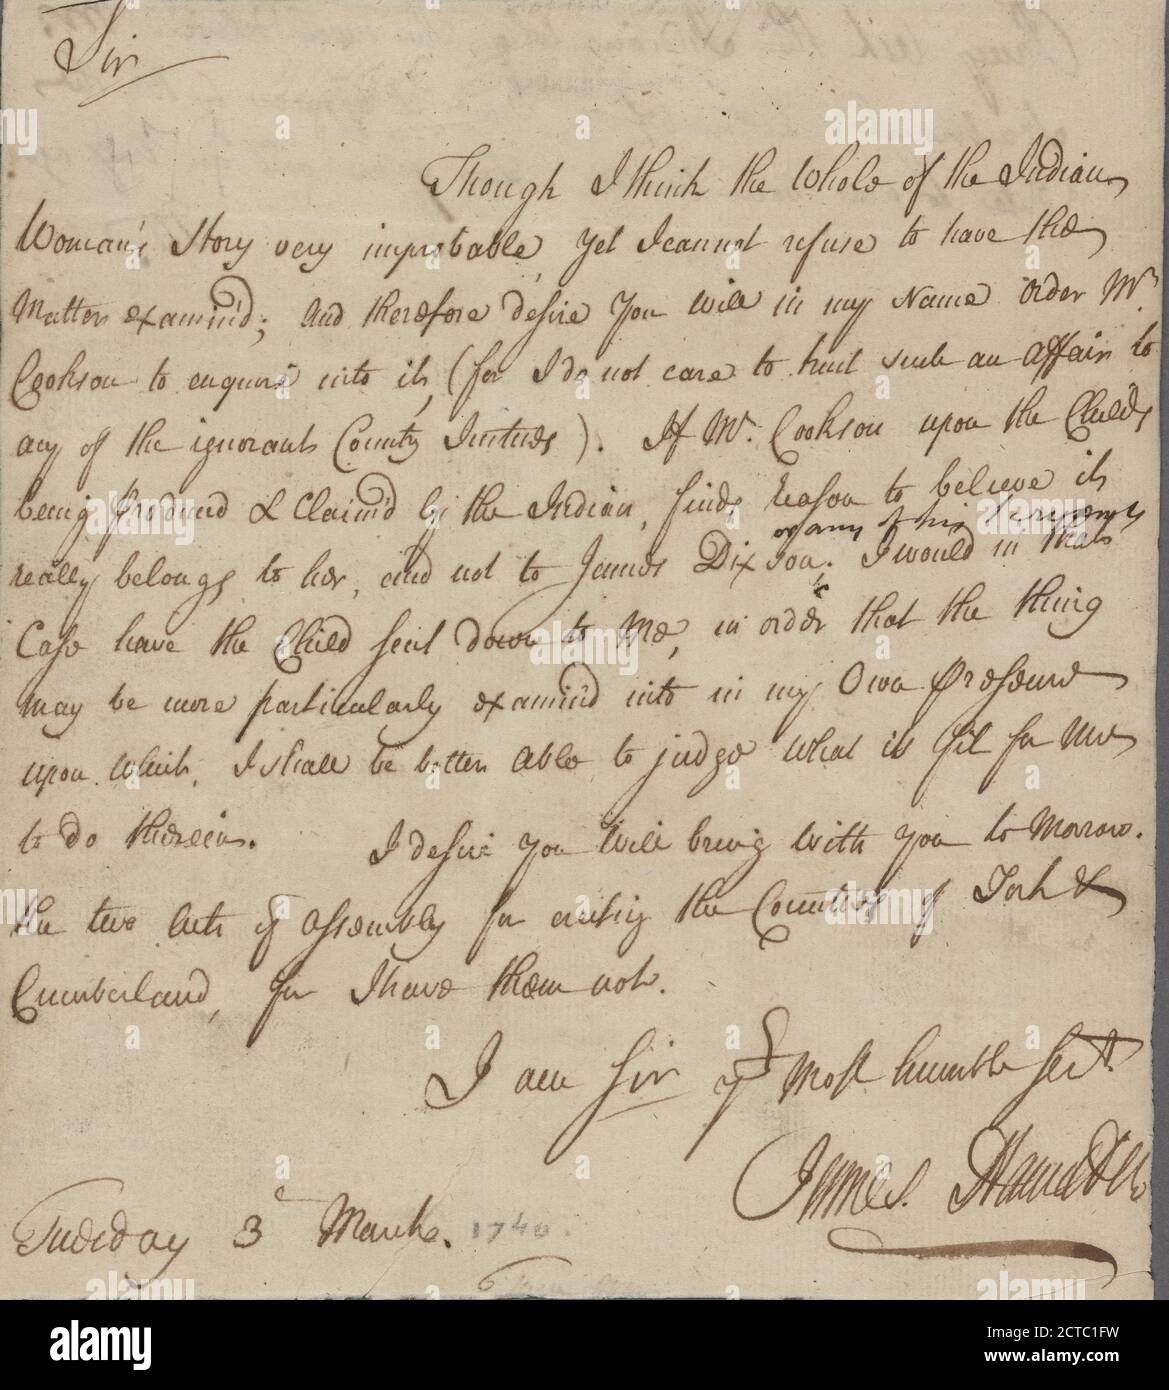 Sir
Though I think the Whole of the Indian
Woman's Story very improbable, yet I cannot refuse to have the
Matter examin'd; and therefore desire you will in my Name order Mr.
Cookson to enquire into it, (for I do not care to trust such an affair to
any of the ignorant County Justices). If Mr. Cookson upon the Child's
being produc'd & Claim'd by the Indian, finds reason to believe it
or any of his Servants
really belongs to her, and not to James Dixson, I would in that
Case have the Child sent down to Me, in order that the thing
may be more particularly examin'd into in my Own Presence
upon which, I shall be better able to judge what is fit for me
to do therein. I desire you will bring with you to Morrow.
the two Acts of Assembly for erecting the Counties of York &
Cumberland, for I have them not.
I am Sir yr Most humble Servt.
James Hamilton
Tuesday 3d March. 1740.
alamy
a
Image ID: 2CTC1FW
www.alamy.com